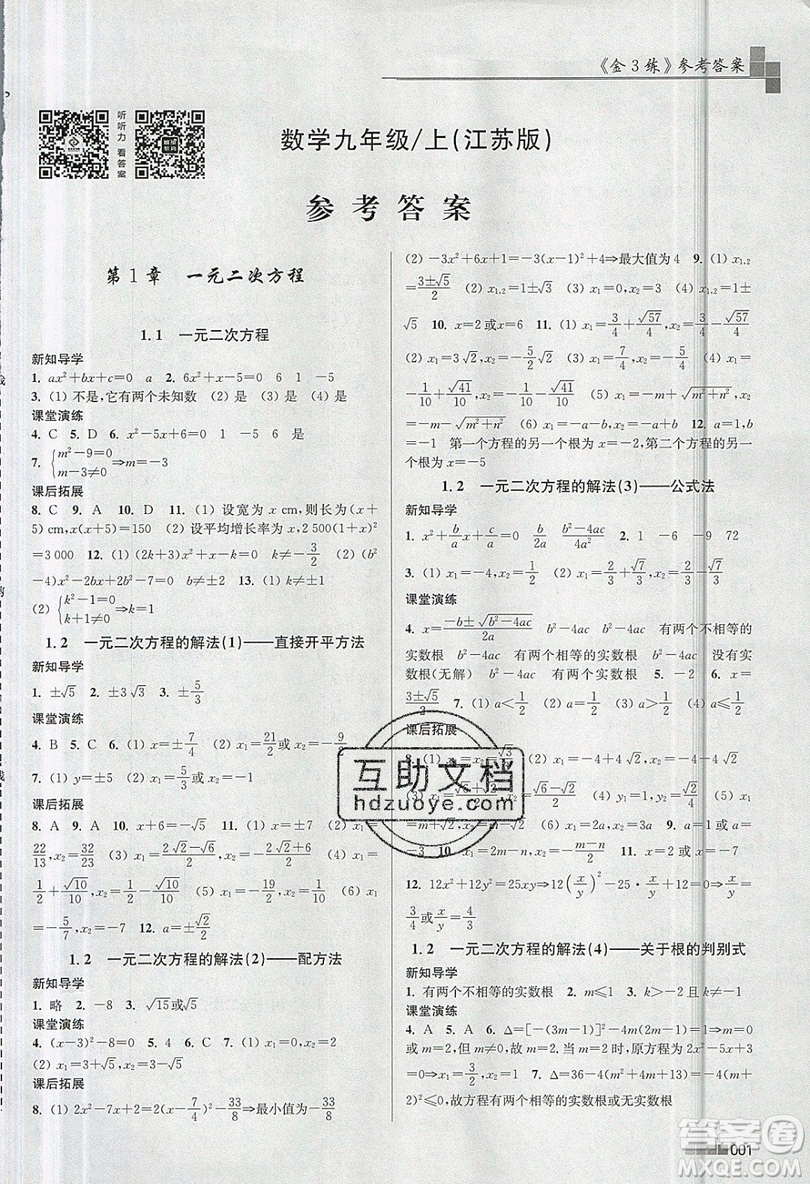 《金3练》参考答案
听听力 看答案
数学九年级/上(江苏版)
参考答案
第1章 一元二次方程
1.1 一元二次方程
新知导学
1. ax²+bx+c=0 a 2. 6x²+x-5=0 6 1 -5
3. (1) 不是,它有两个未知数 (2) 是 (3) 是
课堂演练
4. C 5. D 6. x²-5x+6=0 1 -5 6 是
7. {m²-9=0 m-3≠0⇒m=-3
课后拓展
8. C 9. A 10. D 11. (1) 设宽为 x cm,则长为(x+
5) cm,x(x+5)=150 (2) 设平均增长率为 x,2 500(1+x)²
=3 000 12. (1) (2k+3)x²+x-k=0 k≠-3/2 (2) (b²
-4)x²-2bx+2b²-7=0 b≠±2 13. (1) k≠±1
(2) {k²-1=0 k-1≠0⇒k=-1
1.2 一元二次方程的解法(1)——直接开平方法
新知导学
1. ±√5 2. ±3√3 3. ±5/3
课堂演练
4. B 5. D 6. (1) x=±7/4 (2) x₁=21/2或x₂=-19/2
7. (1) x₁=5/3或x₂=-1 (2) x₁=3/2或x₂=-1/2
课后拓展
8. A 9. A 10. x+6=-5 11. (1) x=±√5 (2) x₁=
22/13,x₂=32/23 (3) x₁=(2√3-1)/2或x₂=(-2√3-1)/2 (4) x₁=
1/2+√10/10或x₂=1/2-√10/10 (5) x₁=-9/2或x₂=1/10 (6) x₁
=-5或x₂=-7 12. a=±√2/2
1.2 一元二次方程的解法(2)——配方法
新知导学
1. 略 2. -8 3. √15或√5
课堂演练
4. (x-3)²-8=0 5. D 6. D 7. (1) x₁=9或x₂=-1
(2) x₁=3+√5或x₂=3-√5
课后拓展
8. (1) 2x²-x-4=2(x-1/4)²-33/8⇒最小值为-33/8
(2) -3x²+6x+1=-3(x-1)²+4⇒最大值为4 9. (1) x₁.₂
=(3±√5)/2 (2) x₁.₂=(1±√5)/2 (3) x=1/2 (4) x₁.₂=1±
√5 10. x=2或x=1 11. (1) x₁=3/4+√57/4或x₂=3/4-
√57/4 (2) x₁=3或x₂=1/2 (3) x₁=7/4或x₂=-1 (4) x₁=
-1/10+√41/10或x₂=-1/10-√41/10 (5) x₁=-m+√(m²+n²)或x₂
=-m-√(m²+n²) (6) x₁=-1或x₂=-4 12. m=3或m
=-1 第一个方程的另一个根为-3,第二个方程的另一个
根为-1
1.2 一元二次方程的解法(3)——公式法
新知导学
1. x²+b/a x+c/a=0 b²-4ac (b²-4ac)/4a² 2. 1 -6 -9 72
3. (1) x₁=1或x₂=-1/3 (2) x₁=2/3+√7/3或x₂=2/3-√7/3
课堂演练
4. x=(-b±√(b²-4ac))/2a b²-4ac 有两个不相等的
实数根 b²-4ac 有两个相等的实数根 b²-4ac 没有
实数根(无解) b²-4ac 有两个实数根 5. -2 6. x=
(3±√5)/3 7. (1) a<1/2 (2) a=1/2 (3) a>1/2 (4) a≤1/2
课后拓展
互助文档
hdzuoye.com
=m+√2,x₂=m-√2 (5) x₁=2a,x₂=a (6) x₁=1或x₂
=2 10. x₁=m或x₂=n 11. x₁=-1或x₂=-(m-n)/2
12. 12x²+12y²=25xy⇒12(x/y)²-25(x/y)+12=0⇒x/y=
3/4或x/y=4/3
1.2 一元二次方程的解法(4)——关于根的判别式
新知导学
1. 有两个不相等的实数根 2. m≤1 3. m>1
课堂演练
4. A 5. A 6. Δ=[-(3m-1)]²-4m(2m-1)=1⇒m=0
或m=2,但m≠0,故m=2.当m=2时,原方程为2x²-5x
+3=0⇒x₁=3/2,x₂=1 7. Δ=36-4(m²+4m+13)=-4(m
+2)²≤0,故方程有两个相等的实数根或无实数根
001
答案圈
MXQE.COM